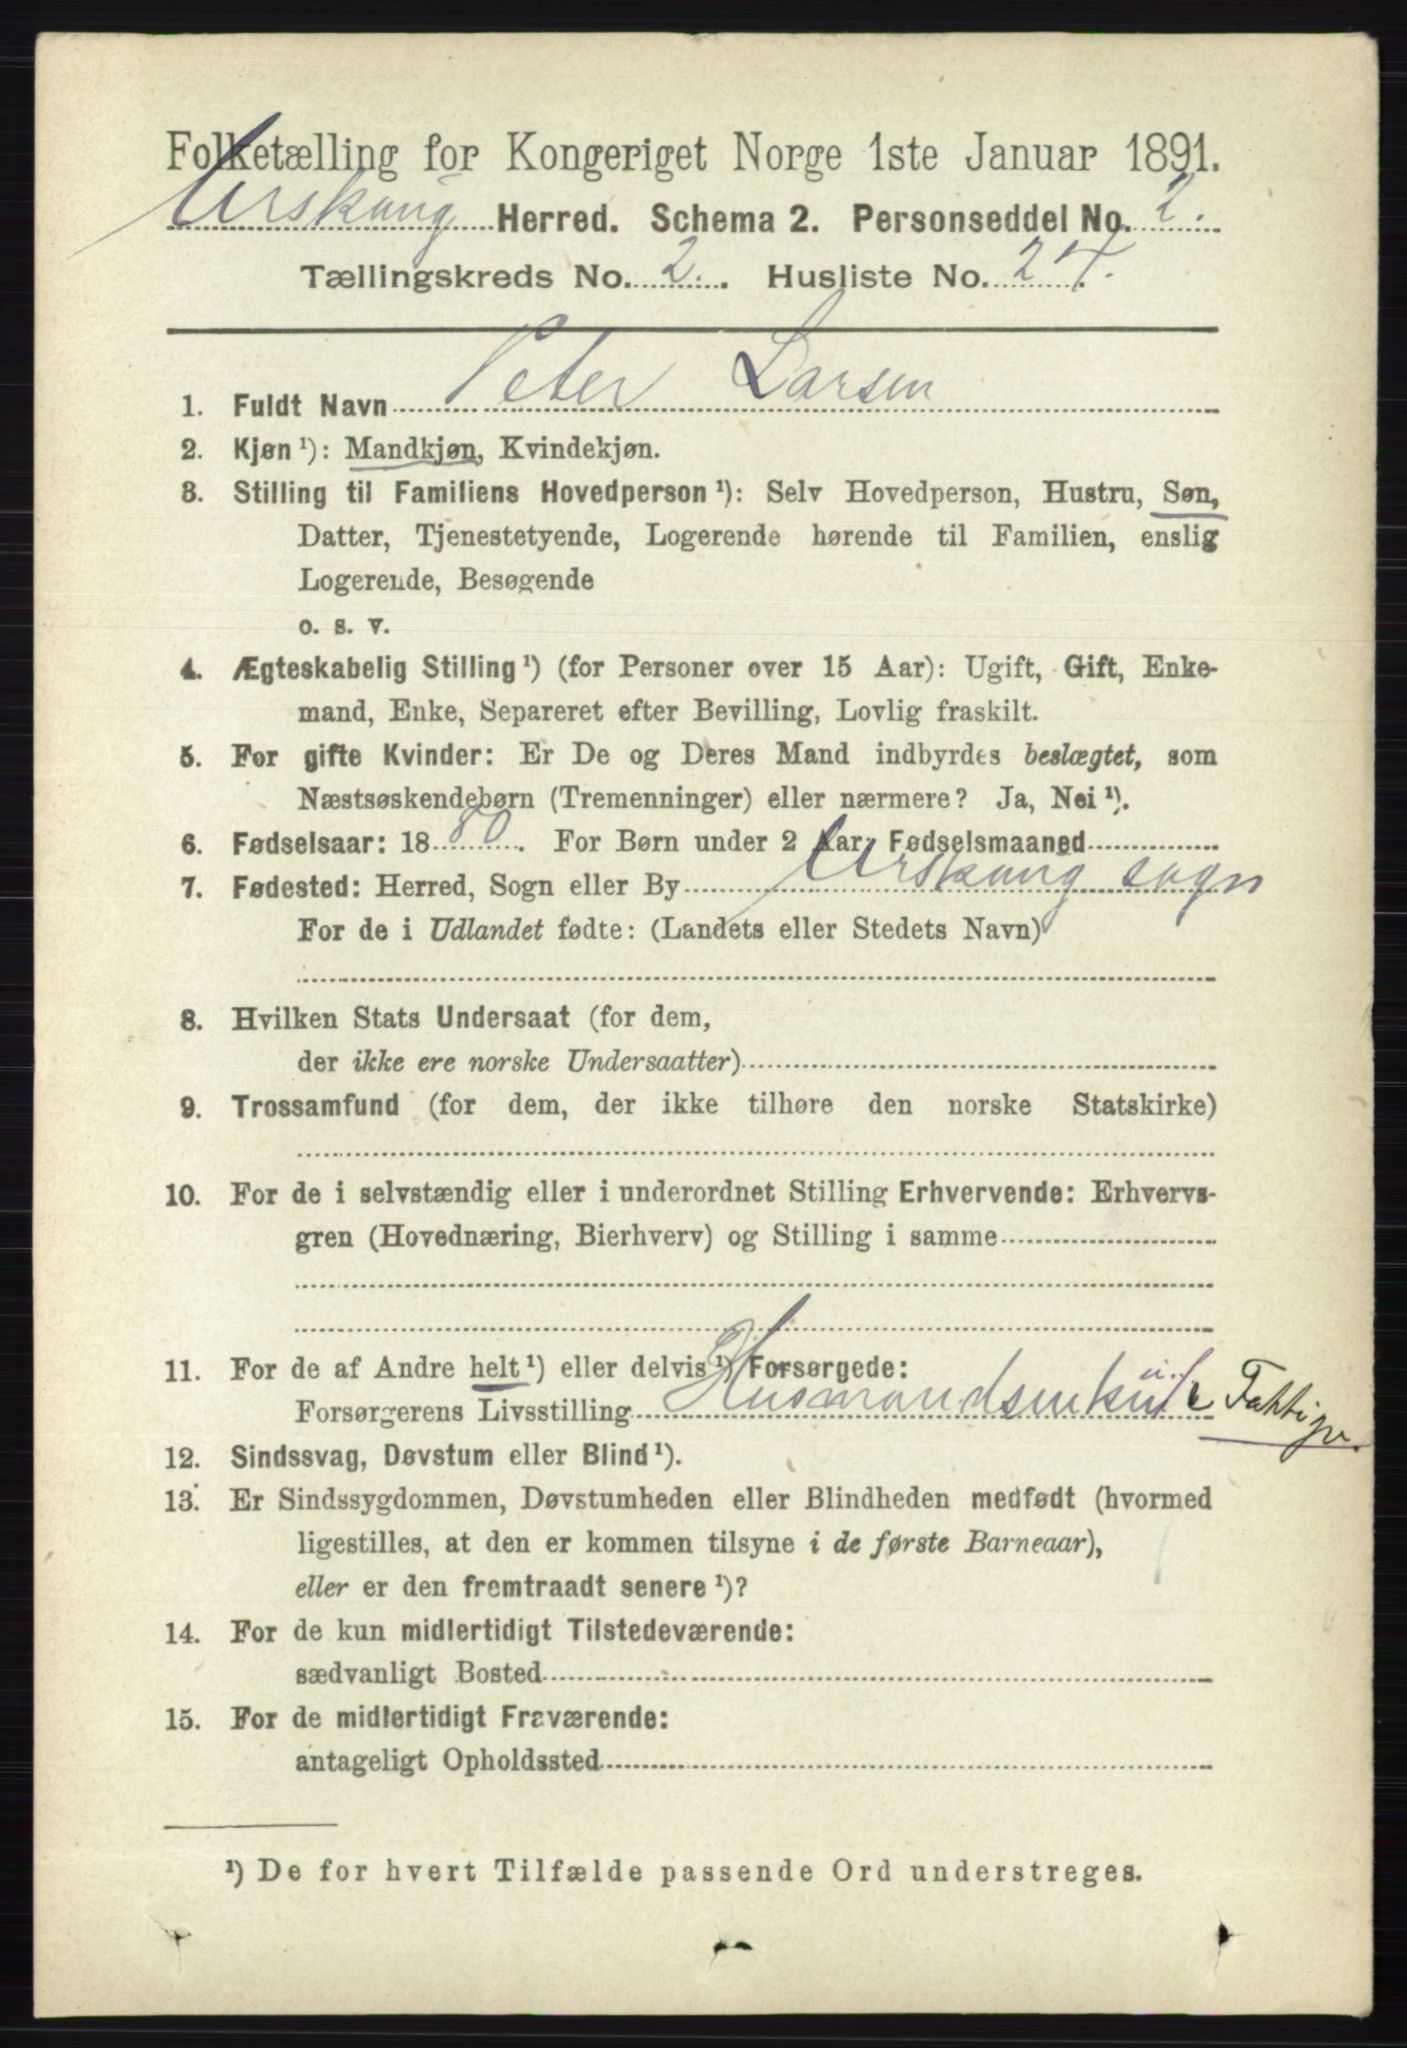 Folketælling for Kongeriget Norge 1ste Januar 1891.
Urskoug Herred. Schema 2. Personseddel No. 2.
Tællingskreds No. 2. Husliste No. 24.
1. Fuldt Navn Peter Larsen
2. Kjøn ¹): Mandkjøn, Kvindekjøn.
3. Stilling til Familiens Hovedperson ¹): Selv Hovedperson, Hustru, Søn,
Datter, Tjenestetyende, Logerende hørende til Familien, enslig
Logerende, Besøgende
o. s. v.
4. Ægteskabelig Stilling ¹) (for Personer over 15 Aar): Ugift, Gift, Enke-
mand, Enke, Separeret efter Bevilling, Lovlig fraskilt.
5. For gifte Kvinder: Er De og Deres Mand indbyrdes beslægtet, som
Næstsøskendebørn (Tremenninger) eller nærmere? Ja, Nei ¹).
6. Fødselsaar: 1880. For Børn under 2 Aar: Fødselsmaaned
7. Fødested: Herred, Sogn eller By Urskoug sogn
For de i Udlandet fødte: (Landets eller Stedets Navn)
8. Hvilken Stats Undersaat (for dem,
der ikke ere norske Undersaatter)
9. Trossamfund (for dem, der ikke tilhøre den norske Statskirke)
10. For de i selvstændig eller i underordnet Stilling Erhvervende: Erhvervs-
gren (Hovednæring, Bierhverv) og Stilling i samme
11. For de af Andre helt ¹) eller delvis ¹) Forsørgede:
Forsørgerens Livsstilling Husmandsenke u. j. Fattigv.
12. Sindssvag, Døvstum eller Blind ¹).
13. Er Sindssygdommen, Døvstumheden eller Blindheden medfødt (hvormed
ligestilles, at den er kommen tilsyne i de første Barneaar),
eller er den fremtraadt senere ¹)?
14. For de kun midlertidigt Tilstedeværende:
sædvanligt Bosted
15. For de midlertidigt Fraværende:
antageligt Opholdssted
¹) De for hvert Tilfælde passende Ord understreges.